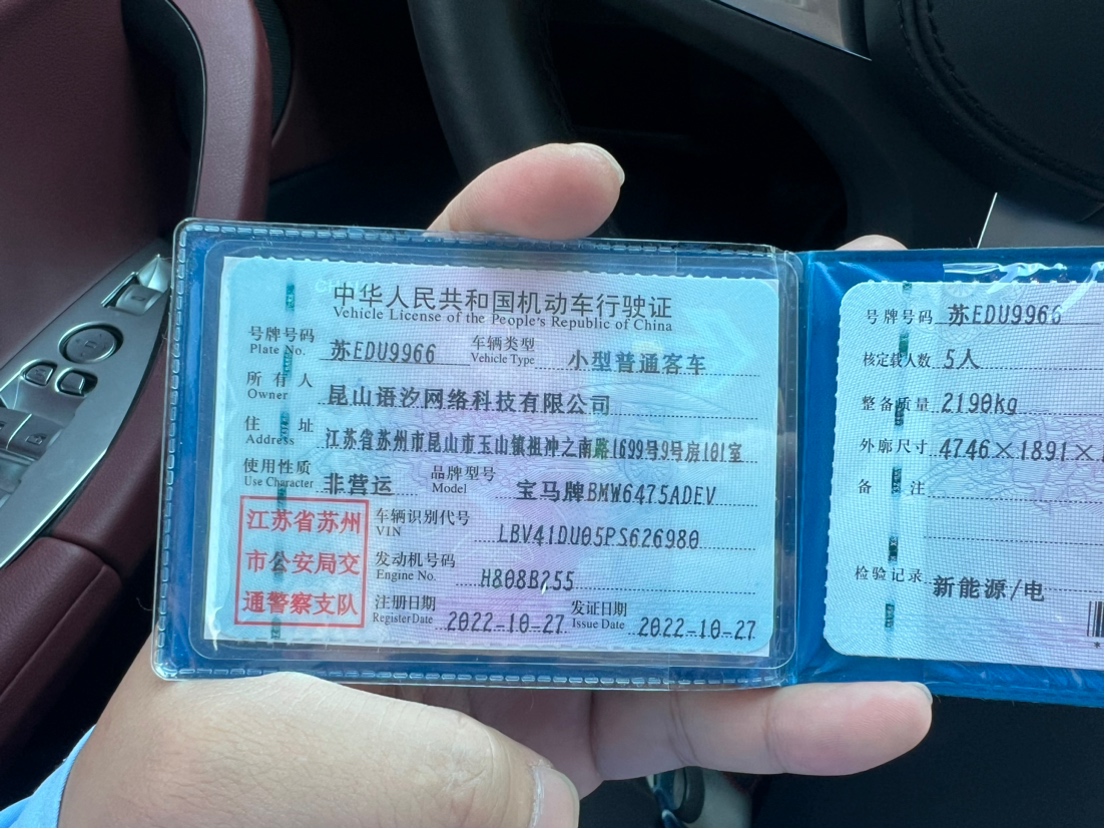 中华人民共和国机动车行驶证
Vehicle License of the People's Republic of China
号牌号码 苏EDU9966 车辆类型 小型普通客车
Plate No. Vehicle Type
所有人 昆山语汐网络科技有限公司
Owner
住址 江苏省苏州市昆山市玉山镇祖冲之南路1699号9号房101室
Address
使用性质 非营运 品牌型号 宝马牌BMW6475ADEV
Use Character Model
江苏省苏州
市公安局交
通警察支队
车辆识别代号 LBV41DU05PS626980
VIN
发动机号码 H808B255
Engine No.
注册日期 2022-10-27 发证日期 2022-10-27
Register Date Issue Date
号牌号码 苏EDU9966
核定载人数 5人
整备质量 2190kg
外廓尺寸 4746×1891×
备注
检验记录 新能源/电